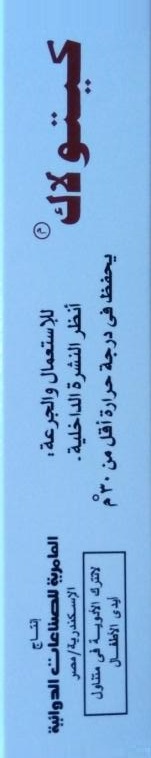 كيتولاك م
للإستعمال والجرعة :
أنظر النشرة الداخلية .
يحفظ فى درجة حرارة أقل من ٣٠°م
إنتاج
العامرية للصناعات الدوائية
الإسكندرية / مصر
لاتترك الأدوية فى متناول
أيدى الأطفال